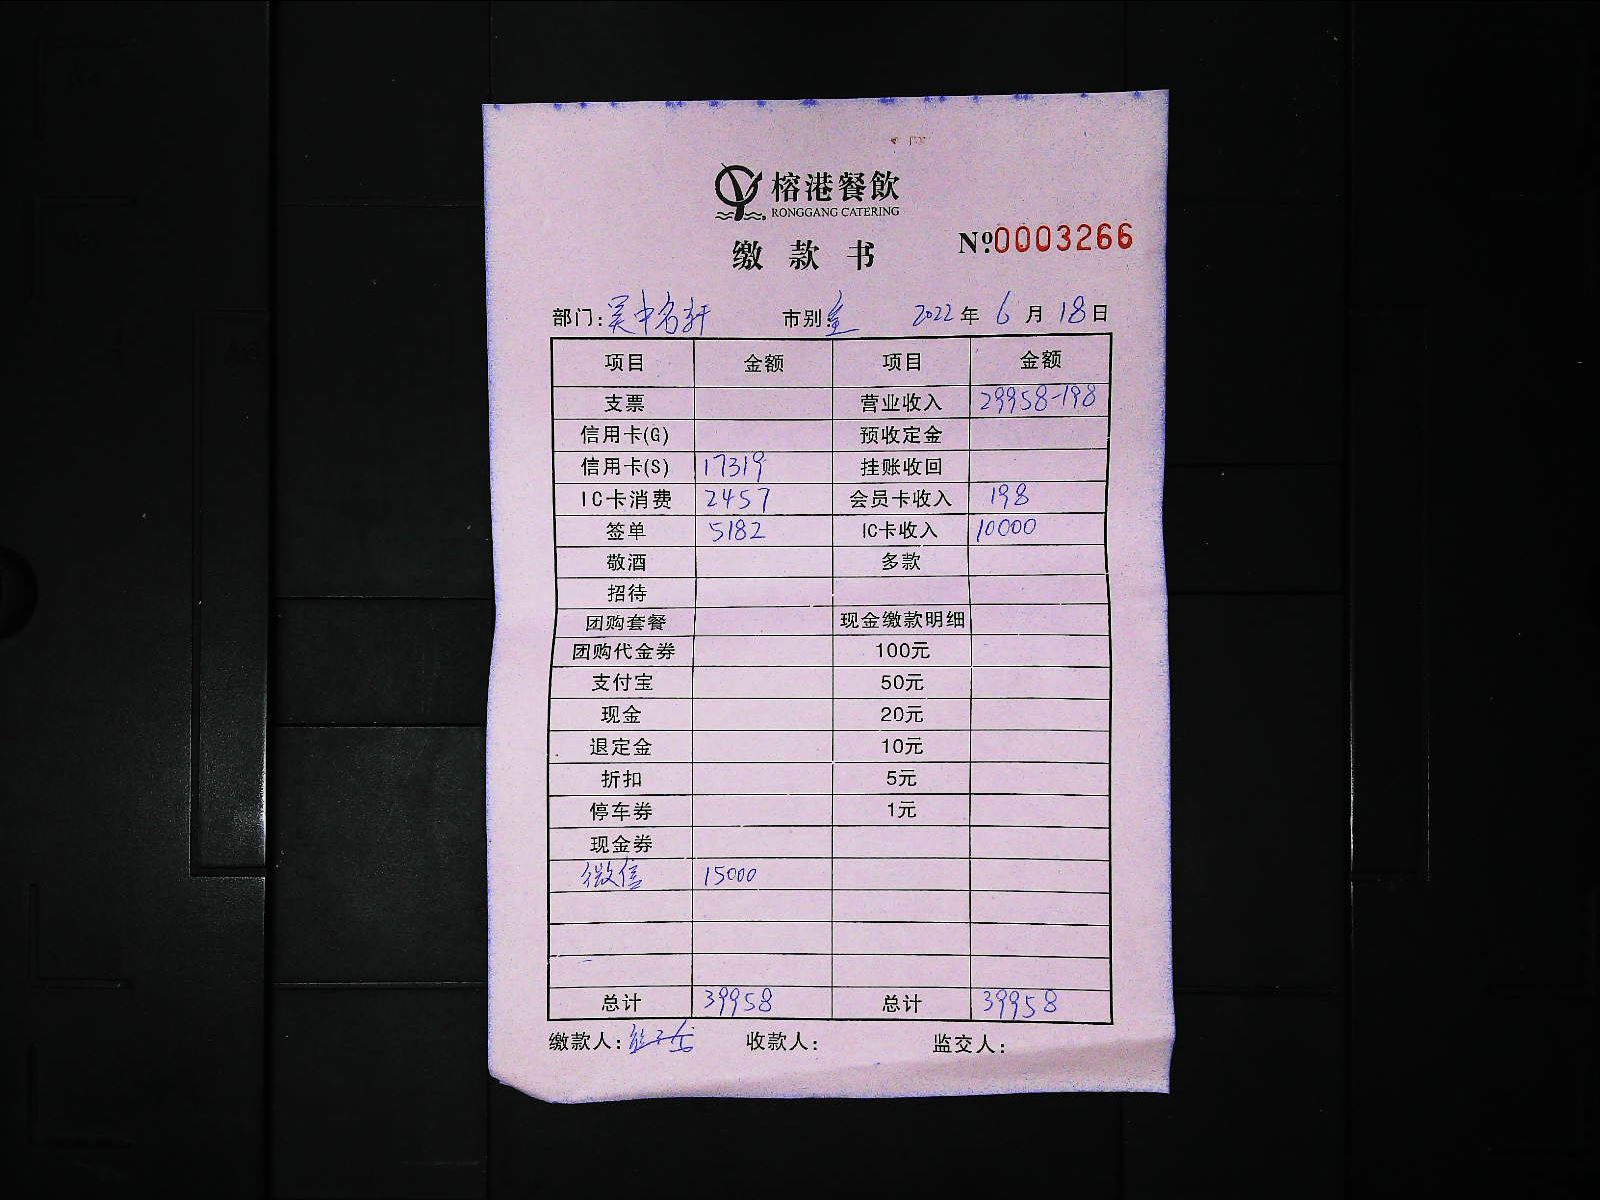 榕港餐飲
RONGGANG CATERING
缴款书 Nº0003266
部门: 吴中名轩 市别: 全 2022 年 6 月 18 日
项目 金额 项目 金额
支票 营业收入 29958-198
信用卡(G) 预收定金
信用卡(S) 17319 挂账收回
IC卡消费 2457 会员卡收入 198
签单 5182 IC卡收入 10000
敬酒 多款
招待
团购套餐 现金缴款明细
团购代金券 100元
支付宝 50元
现金 20元
退定金 10元
折扣 5元
停车券 1元
现金券
微信 15000
总计 39958 总计 39958
缴款人: 收款人: 监交人: